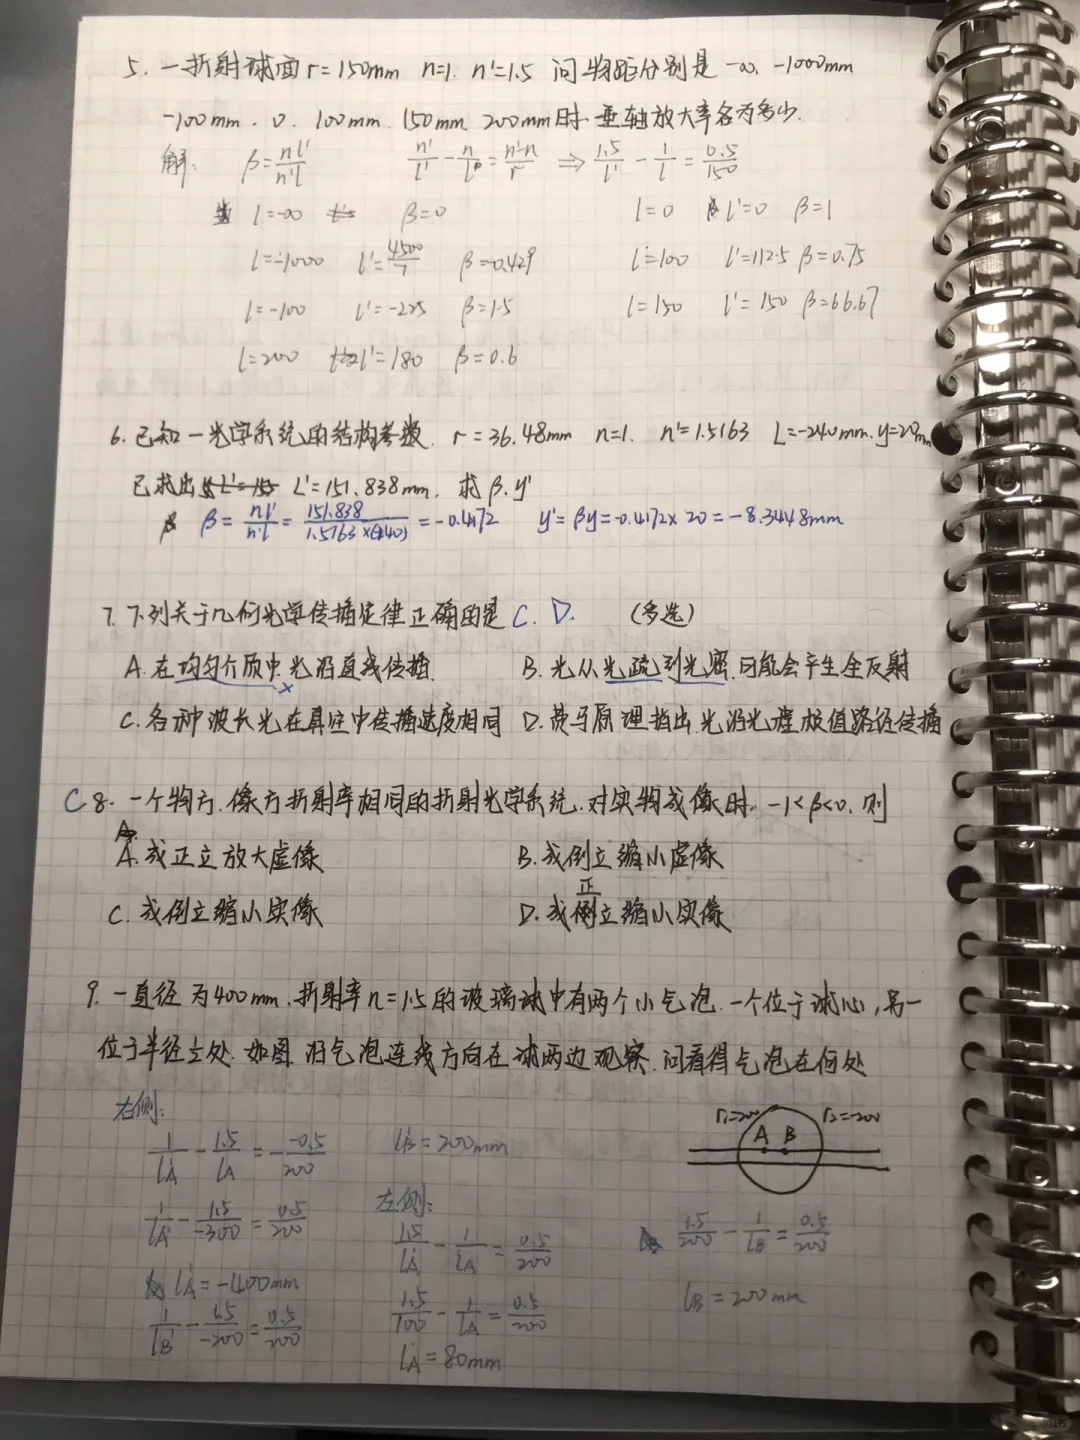 5. 一折射球面 r=150mm n=1. n'=1.5 问物距分别是 -∞. -1000mm
-100mm. 0. 100mm. 150mm. 200mm时. 垂轴放大率各为多少.
解: β=nl'/n'l n'/l' - n/l = n'-n/r ⇒ 1.5/l' - 1/l = 0.5/150
l=-∞ β=0 l=0 l'=0 β=1
l=-1000 l'=4500/7 β=-0.429 l=100 l'=112.5 β=0.75
l=-100 l'=-225 β=1.5 l=150 l'=150 β=66.67
l=200 l'=180 β=0.6
6. 已知一光学系统的结构参数. r=36.48mm n=1. n'=1.5163 L=-240mm. y=20mm
已求出 L'=151.838mm. 求β.y'
β=nl'/n'l=151.838/1.5163×(-240)=-0.4172 y'=βy=-0.4172×20=-8.3448mm
7. 下列关于几何光学传播定律正确的是 C. D. (多选)
A. 在均匀介质中光沿直线传播. B. 光从光疏到光密.可能会产生全反射
C. 各种波长光在真空中传播速度相同 D. 费马原理指出.光沿光程极值路径传播
C 8. 一个物方.像方折射率相同的折射光学系统.对实物成像时. -1<β<0. 则
A. 成正立放大虚像 B. 成倒立缩小虚像
C. 成倒立缩小实像 D. 成正立缩小实像
9. 一直径为400mm.折射率n=1.5的玻璃球中有两个小气泡.一个位于球心,另一
位于半径½处.如图.沿气泡连线方向在球两边观察.问看得气泡在何处
右侧: r₁=200 r₂=-200
A B
1/lA' - 1.5/lA = -0.5/200 lB'=200mm
左侧:
1/lA' - 1.5/-300 = 0.5/200 1.5/lA' - 1/lA = 0.5/200 1.5/200 - 1/lB = 0.5/200
lA'=-400mm 1.5/100 - 1/lA = 0.5/200 lB=200mm
1/lB' - 1.5/-200 = 0.5/200
lA=80mm